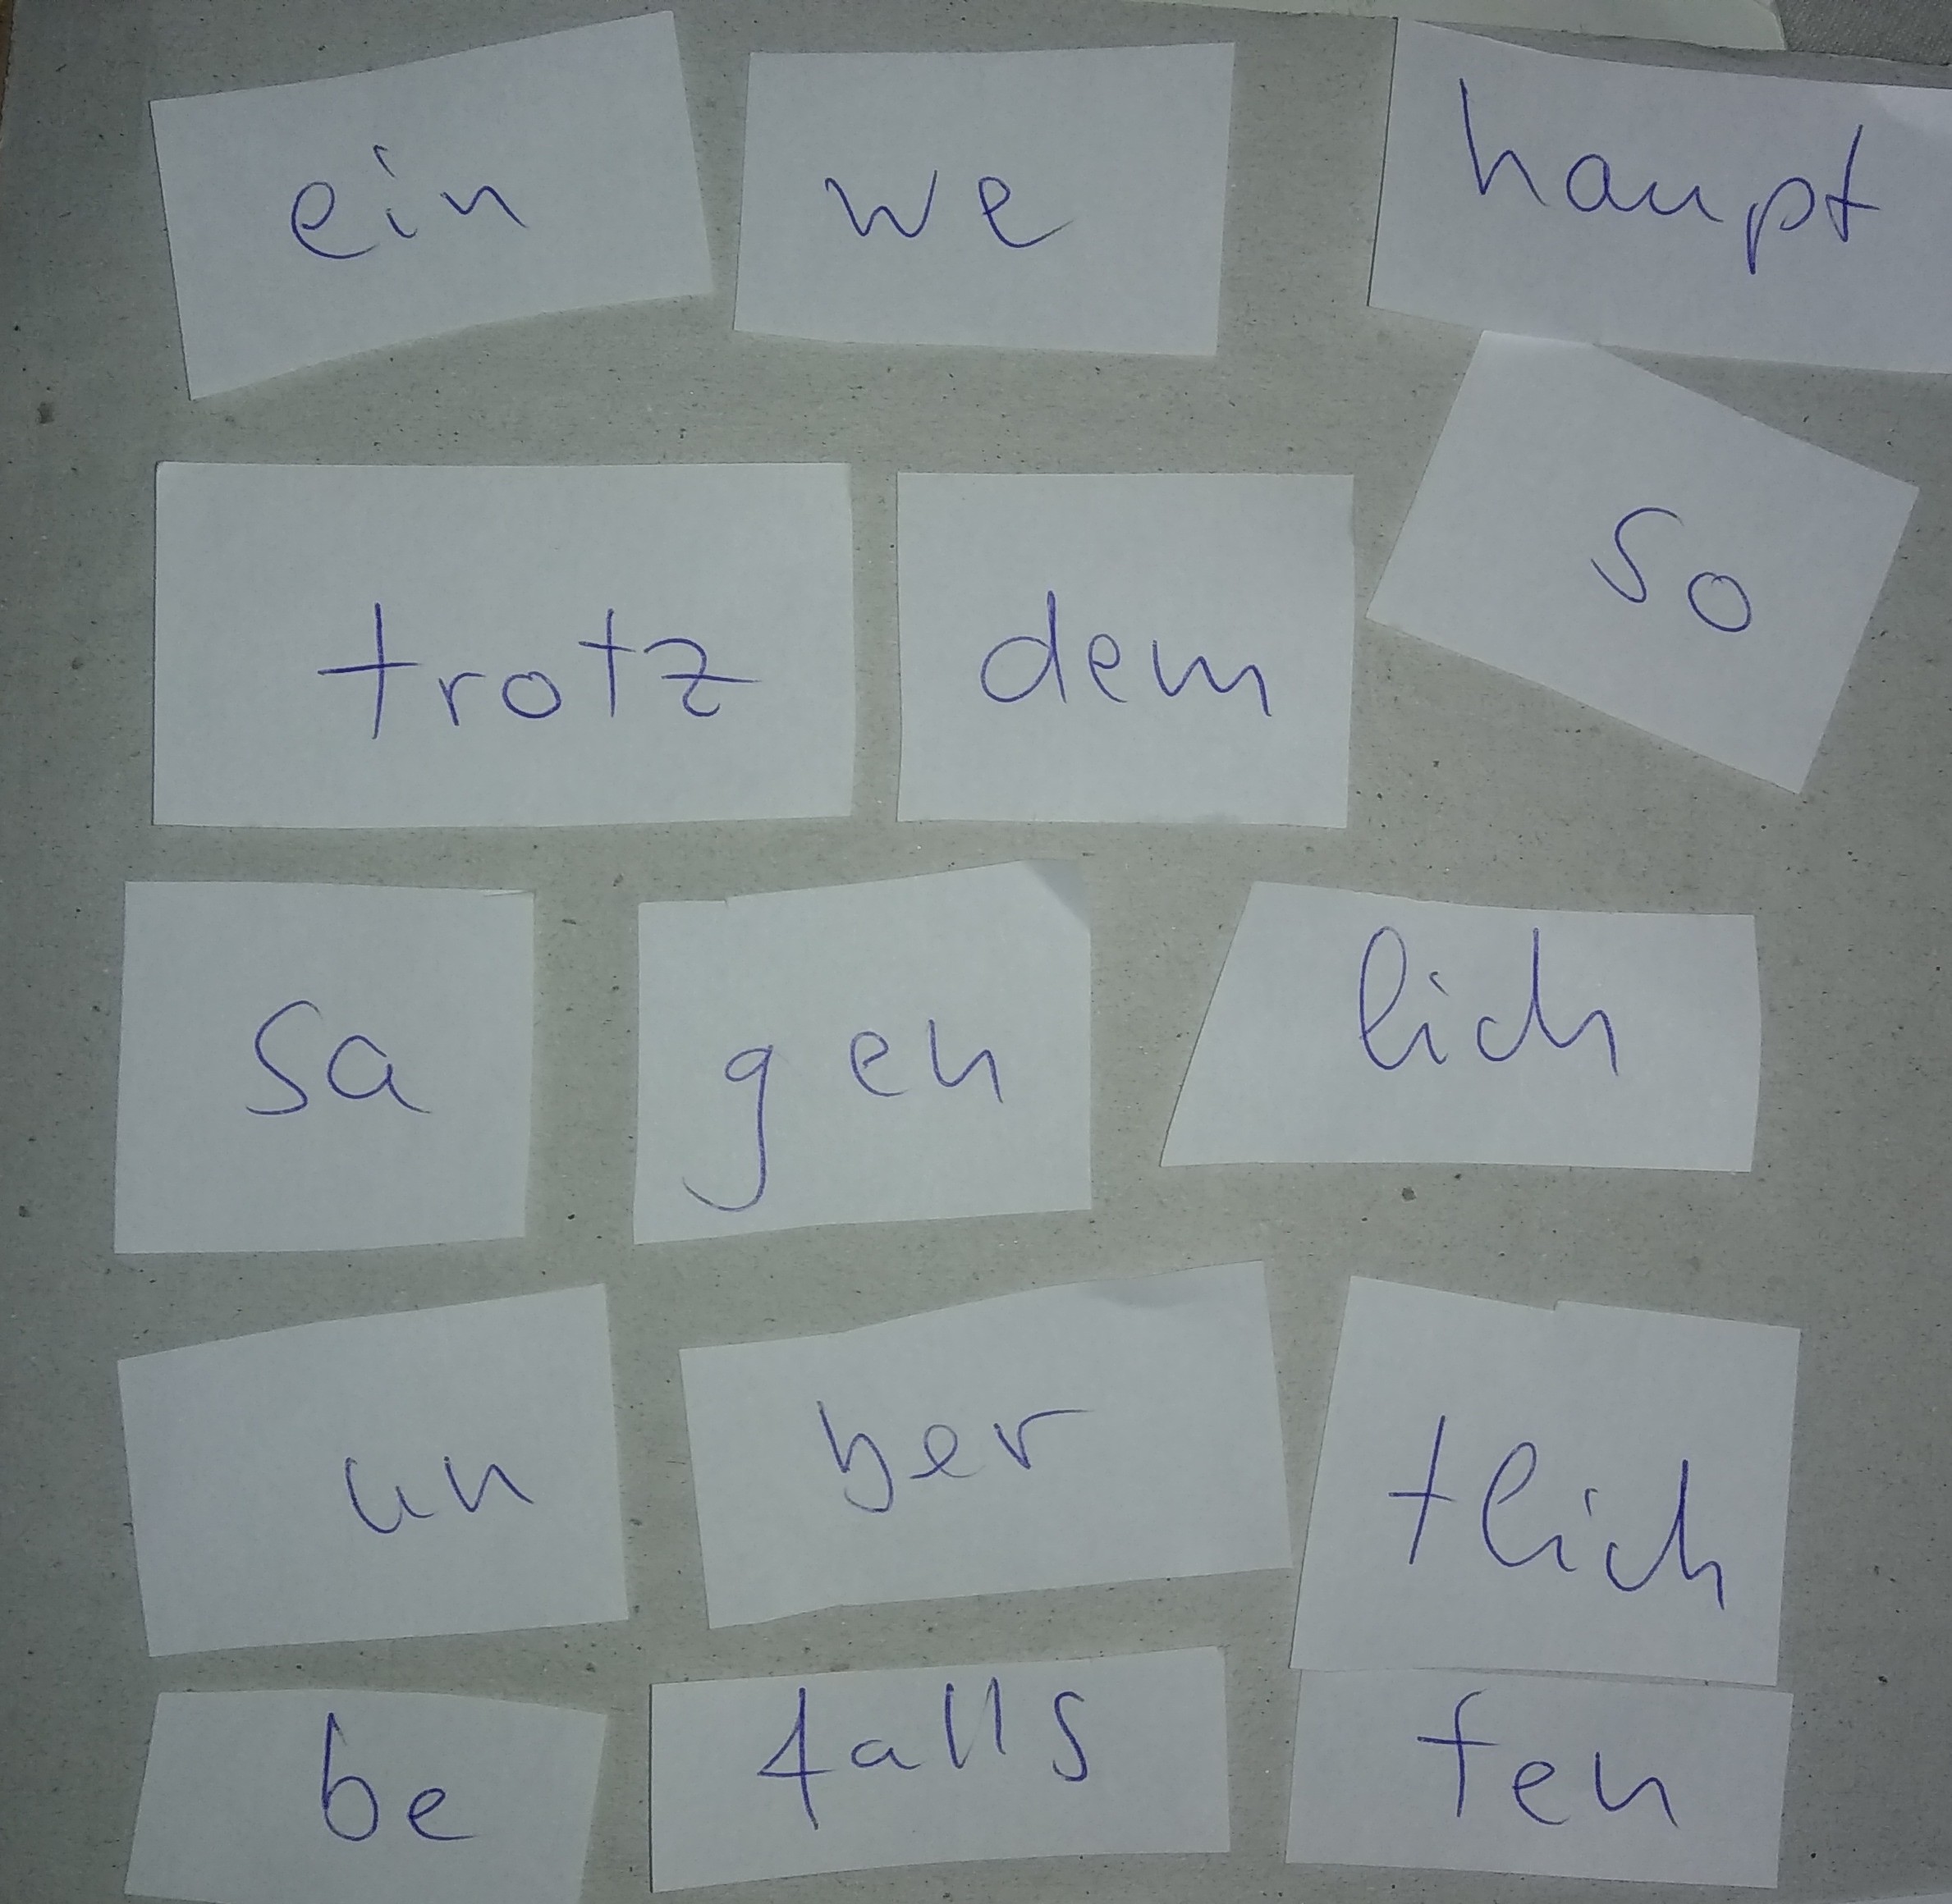 ein we haupt
trotz dem so
sa gen lich
un ber tlich
be falls fen